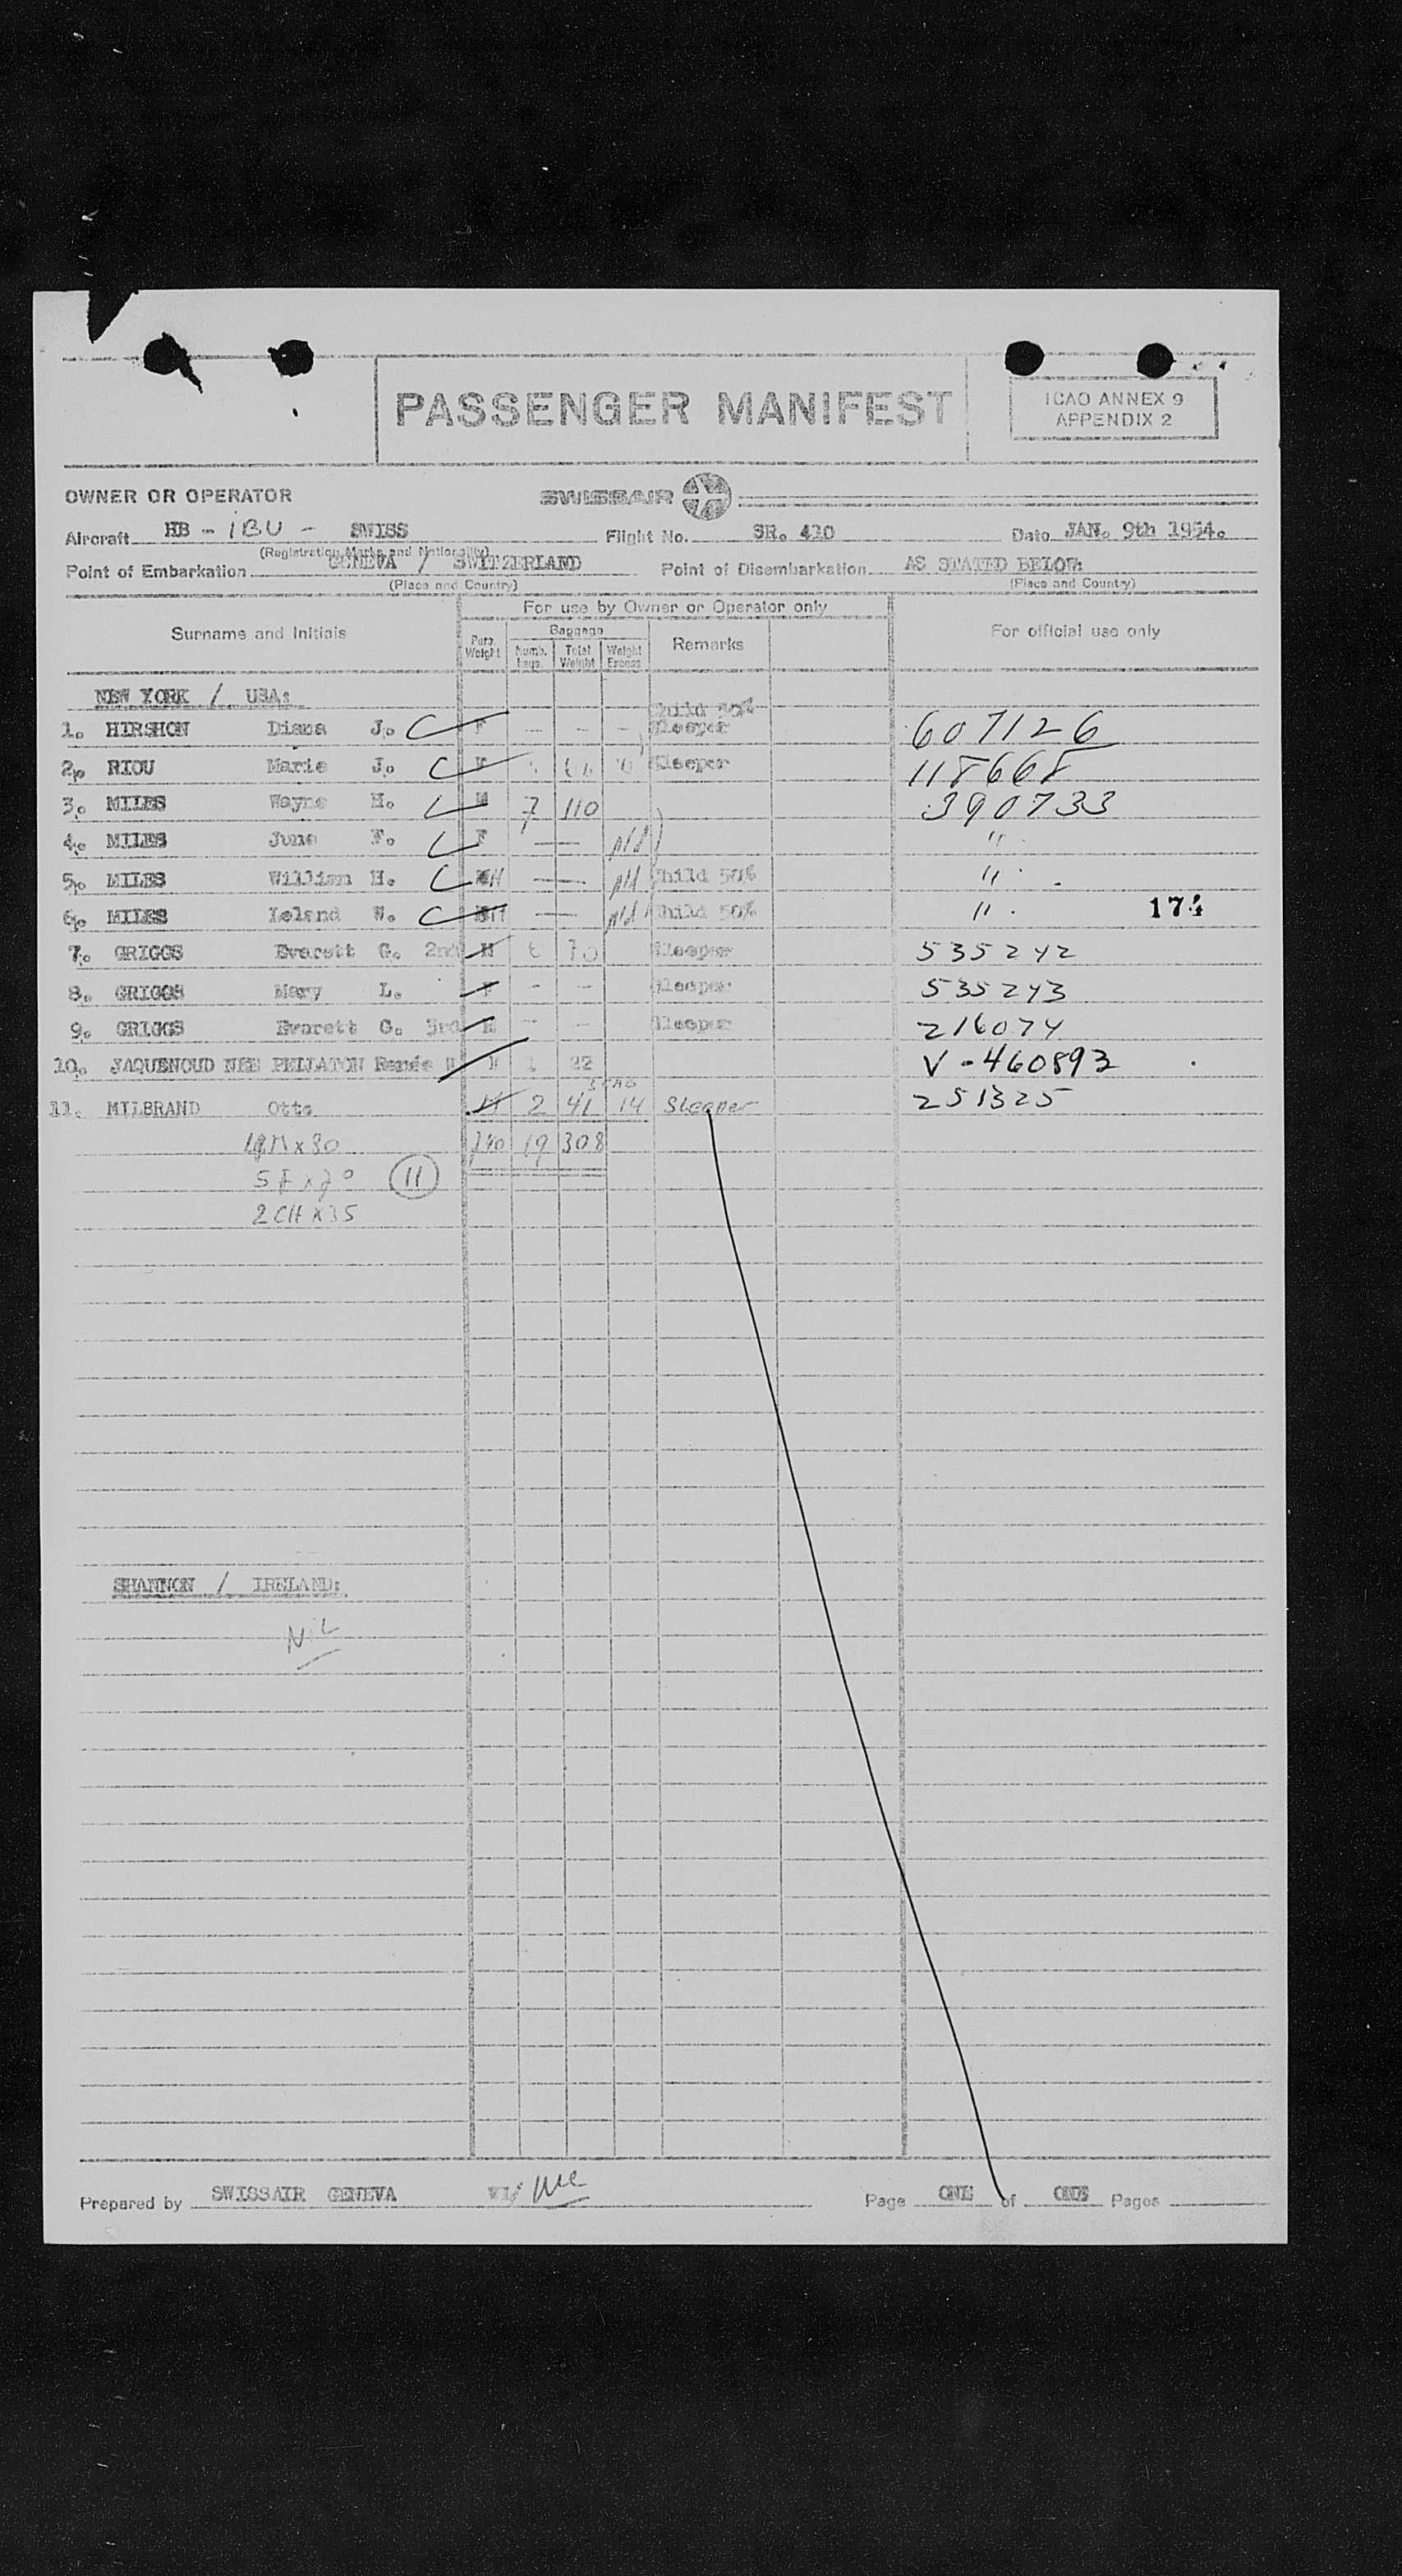 PASSENGER MANIFEST
ICAO ANNEX 9
APPENDIX 2
OWNER OR OPERATOR SWISSAIR
Aircraft HB - iBU - SWISS Flight No. SR. 410 Date JAN. 9th 1954.
(Registration Marks and Nationality)
Point of Embarkation GENEVA / SWITZERLAND Point of Disembarkation AS STATED BELOW:
(Place and Country) (Place and Country)
For use by Owner or Operator only
Surname and Initials Pass. Weight Baggage Numb. bags. Total Weight Weight Excess Remarks For official use only
NEW YORK / USA:
Child 50%
1. HIRSHON Diana J. C F - - - Sleeper 607126
2. RIOU Marie J. C F Sleeper 118668
3. MILES Wayne H. C M 7 110 390733
4. MILES June F. C F — nil "
5. MILES William H. C CH — nil Child 50% "
6. MILES Leland W. C CH — nil Child 50% " 174
7. GRIGGS Everett G. 2nd M 6 70 Sleeper 535242
8. GRIGGS Mary L. F - - Sleeper 535243
9. GRIGGS Everett G. 3rd M - - Sleeper 216074
10. JAQUENOUD NEE PELLATON Renée 22 V-460893
11. MILBRAND Otto M 2 41 14 Sleeper 251325
M x 80 19 308
5 F x 70 11
2 CH x 35
SHANNON / IRELAND:
NiL
Prepared by SWISSAIR GENEVA Page ONE of ONE Pages